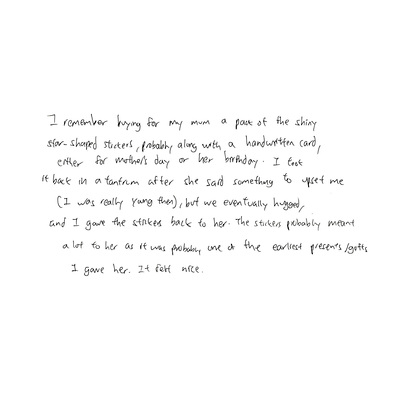 I remember buying for my mum a pack of the shiny
star-shaped stickers, probably along with a handwritten card,
either for mother's day or her birthday. I took
it back in a tantrum after she said something to upset me
(I was really young then), but we eventually hugged,
and I gave the stickers back to her. The stickers probably meant
a lot to her as it was probably one of the earliest presents/gifts
I gave her. It felt nice.